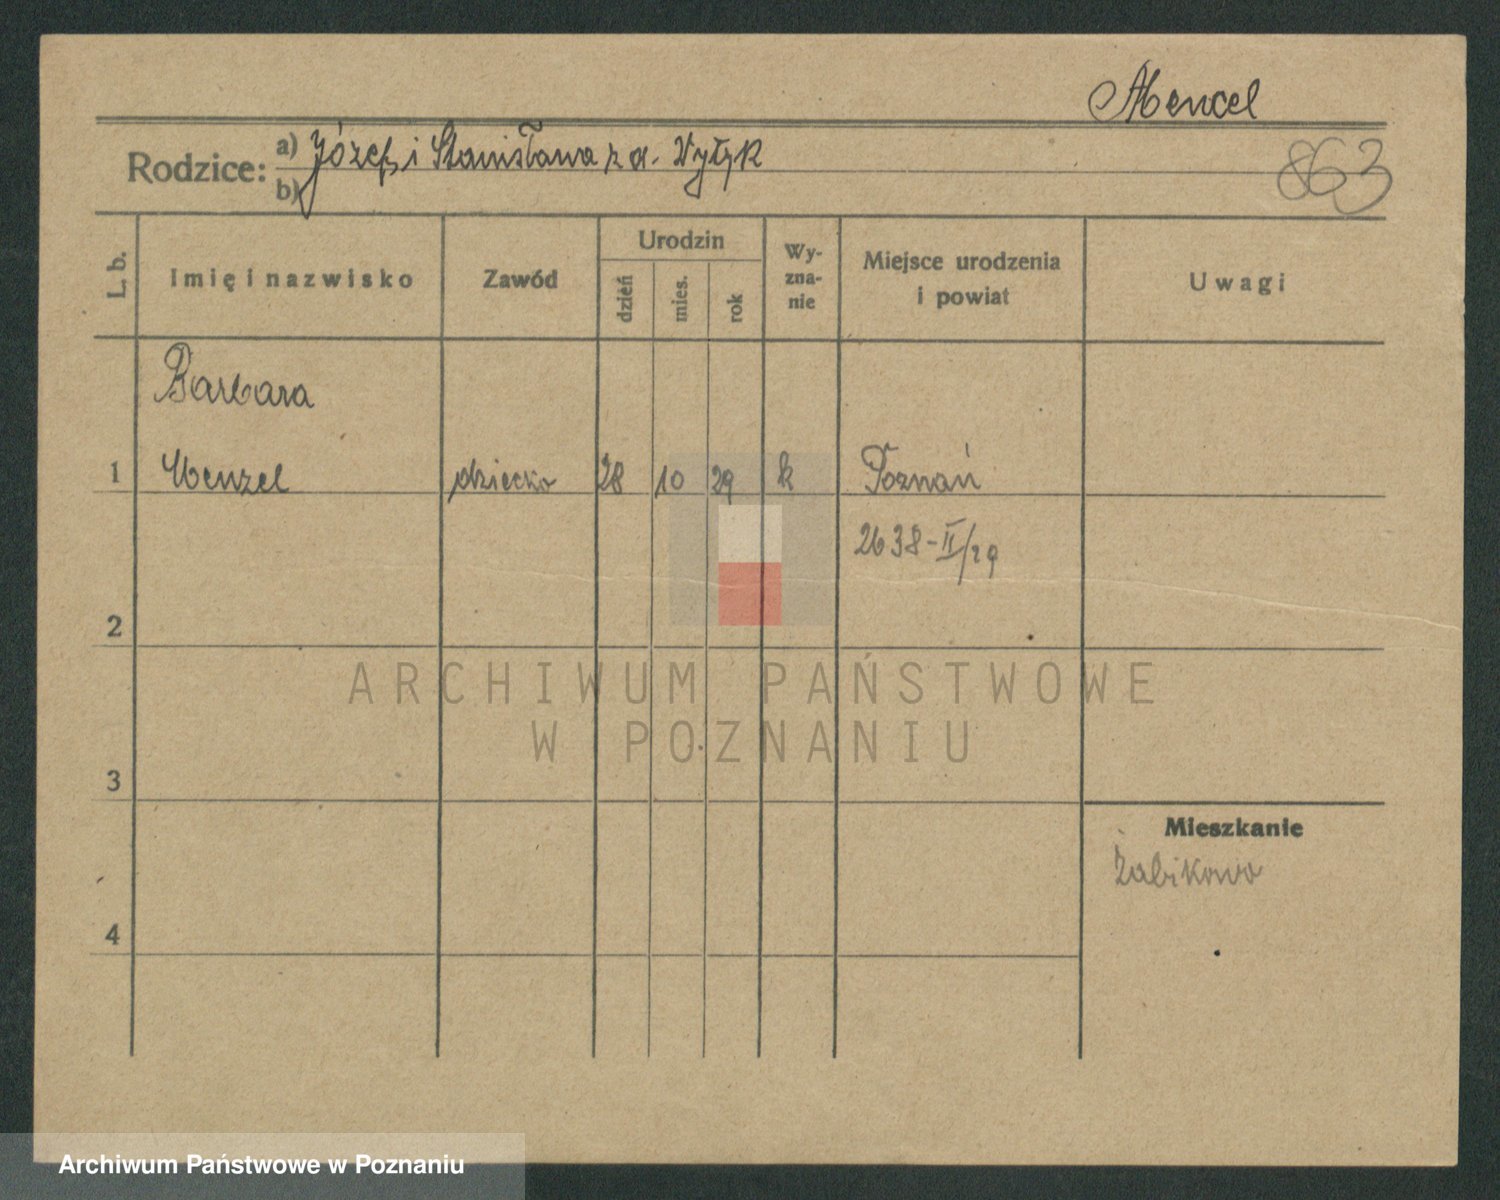 Mencel
863
Rodzice: a) Józef i Stanisława z d. Wyżyk
b)
L. b.
Imię i nazwisko
Zawód
Urodzin
dzień
mies.
rok
Wy-
zna-
nie
Miejsce urodzenia
i powiat
Uwagi
Barbara
1 Menzel dziecko 28 10 29 k Poznań
2638-II/29
2
3
Mieszkanie
Żabikowo
4
ARCHIWUM PAŃSTWOWE
W POZNANIU
Archiwum Państwowe w Poznaniu